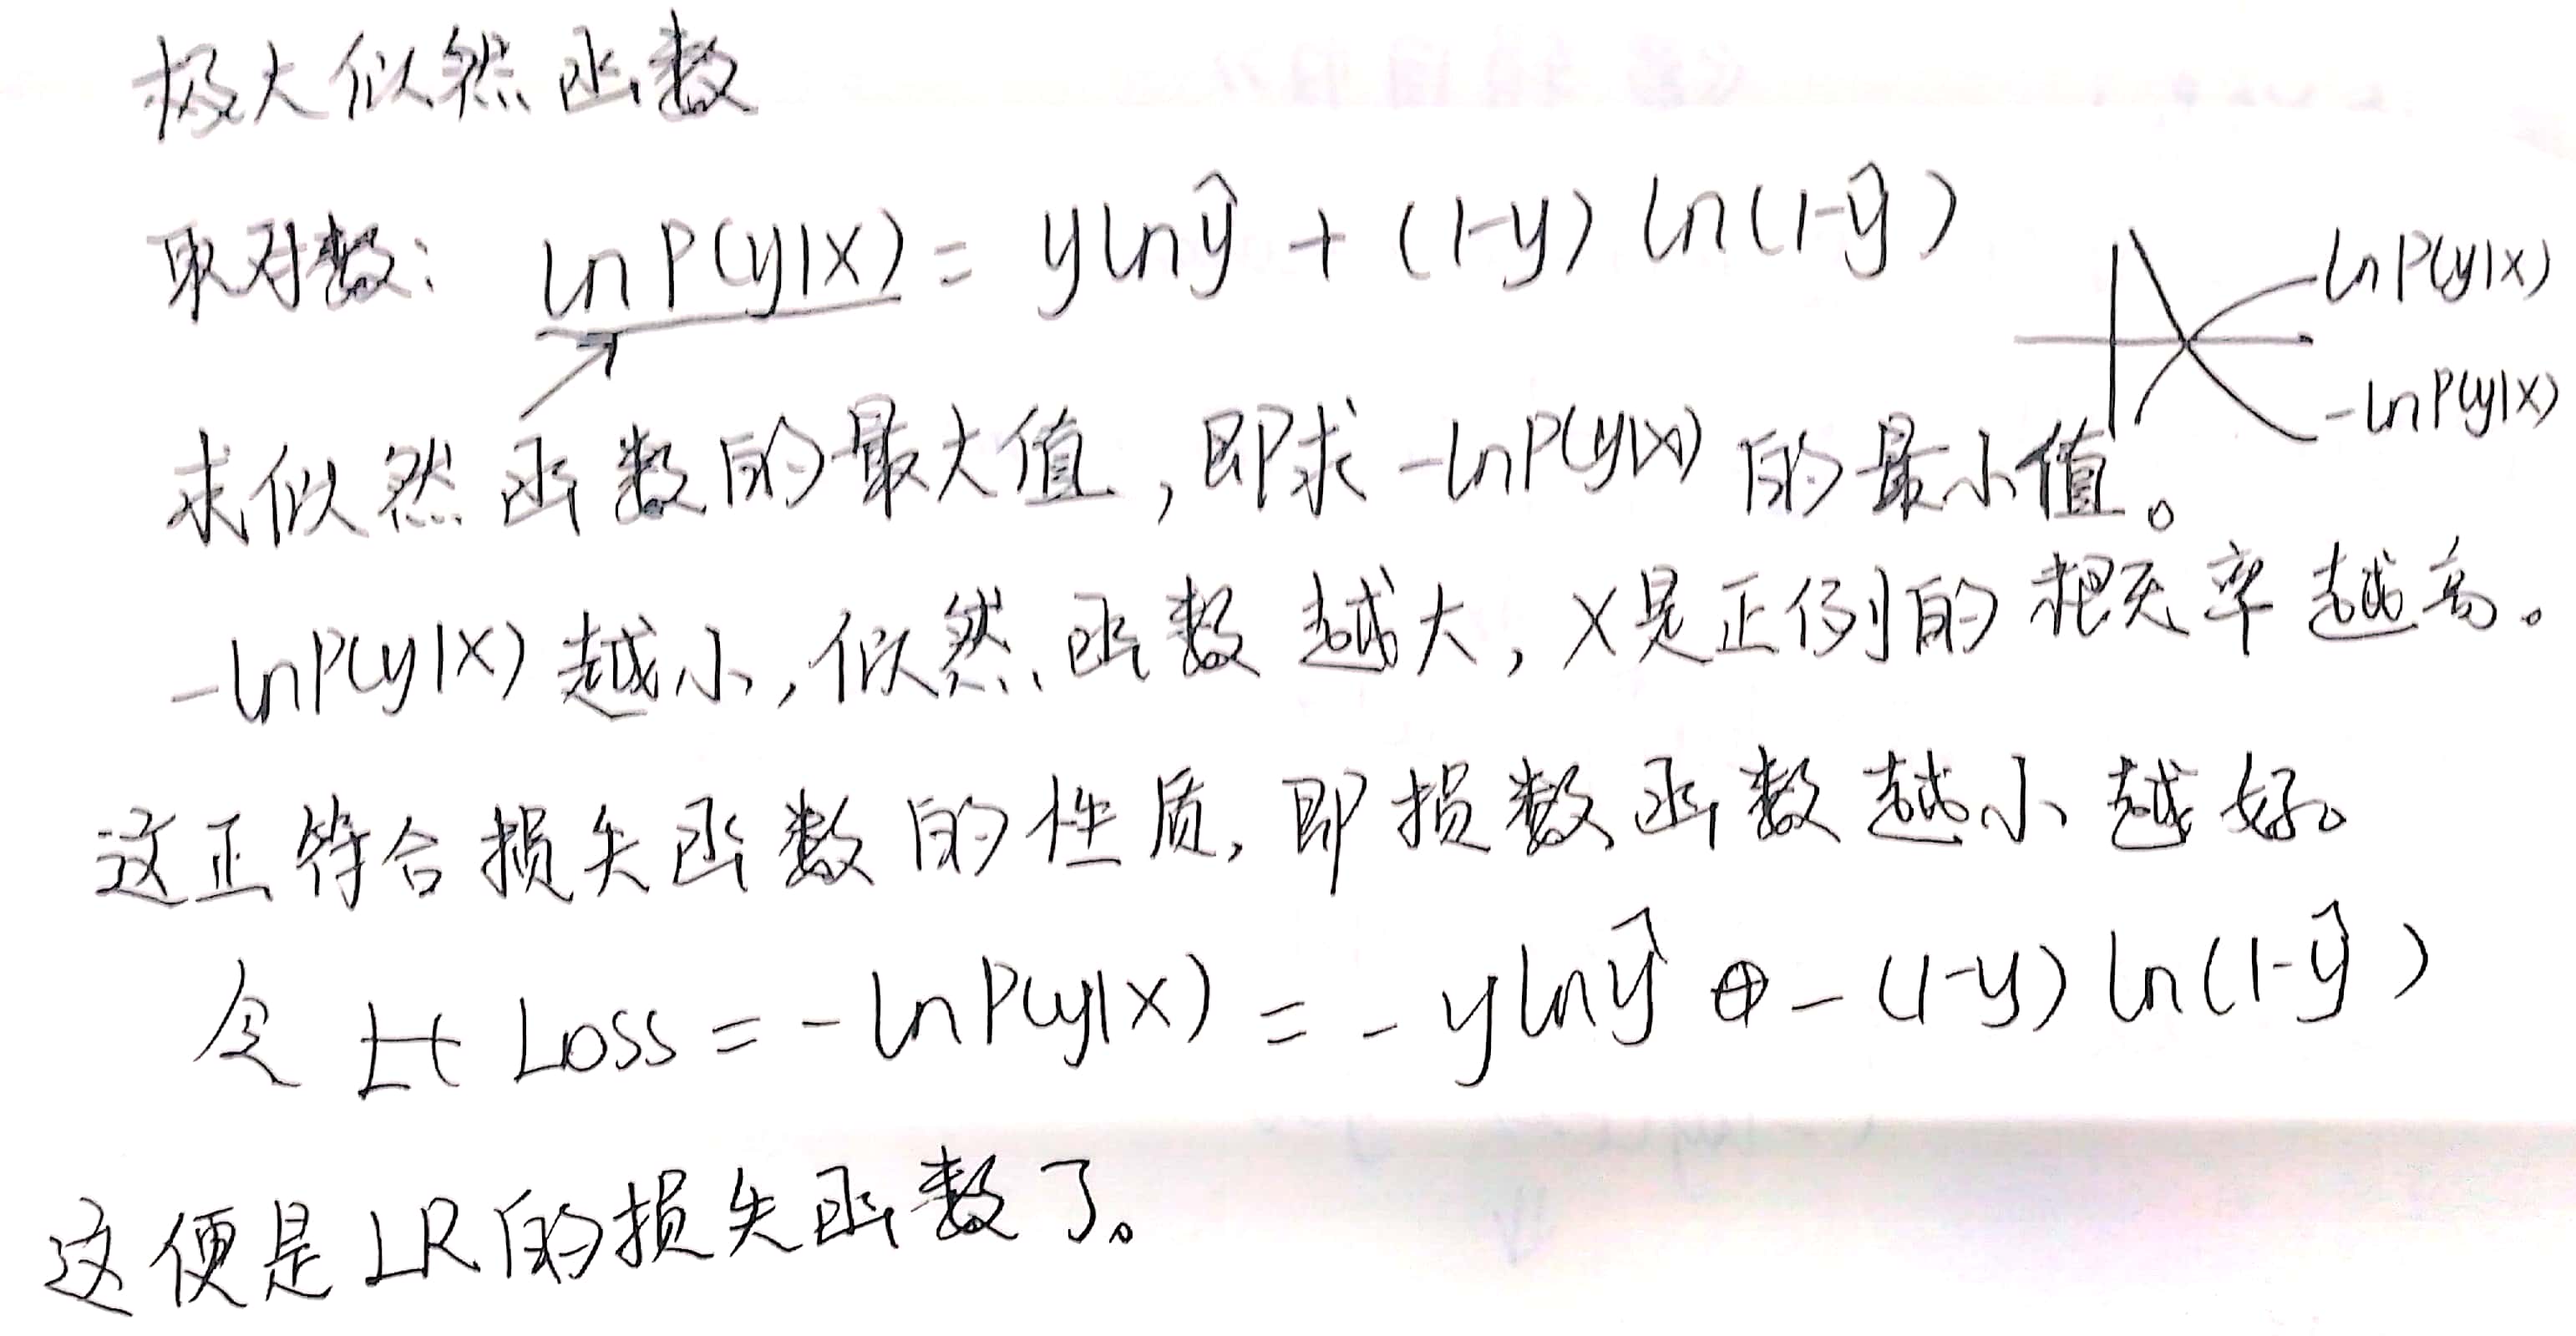 极大似然函数
取对数: ln P(y|x) = y ln ŷ + (1-y) ln (1-ŷ)
ln P(y|x)
-ln P(y|x)
求似然函数的最大值，即求 -ln P(y|x) 的最小值。
-ln P(y|x) 越小，似然函数越大，X是正例的概率越高。
这正符合损失函数的性质，即损数函数越小越好。
令 Loss = -ln P(y|x) = -y ln ŷ - (1-y) ln (1-ŷ)
这便是LR的损失函数了。